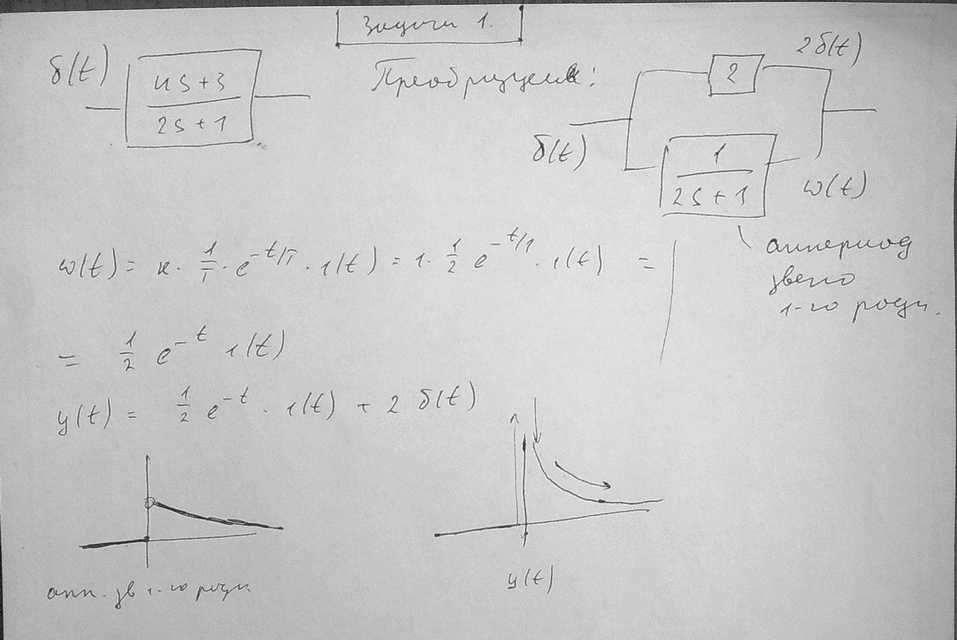 Задача 1.
δ(t)
4s+3
2s+1
Преобразуем:
2
2δ(t)
δ(t)
1
2s+1
ω(t)
апериод
звено
1-го
ω(t) = к · 1/T · e^{-t/T} · 1(t) = 1 · 1/2 e^{-t/1} · 1(t) =
= 1/2 e^{-t} 1(t)
y(t) = 1/2 e^{-t} · 1(t) + 2 δ(t)
1-го
y(t)